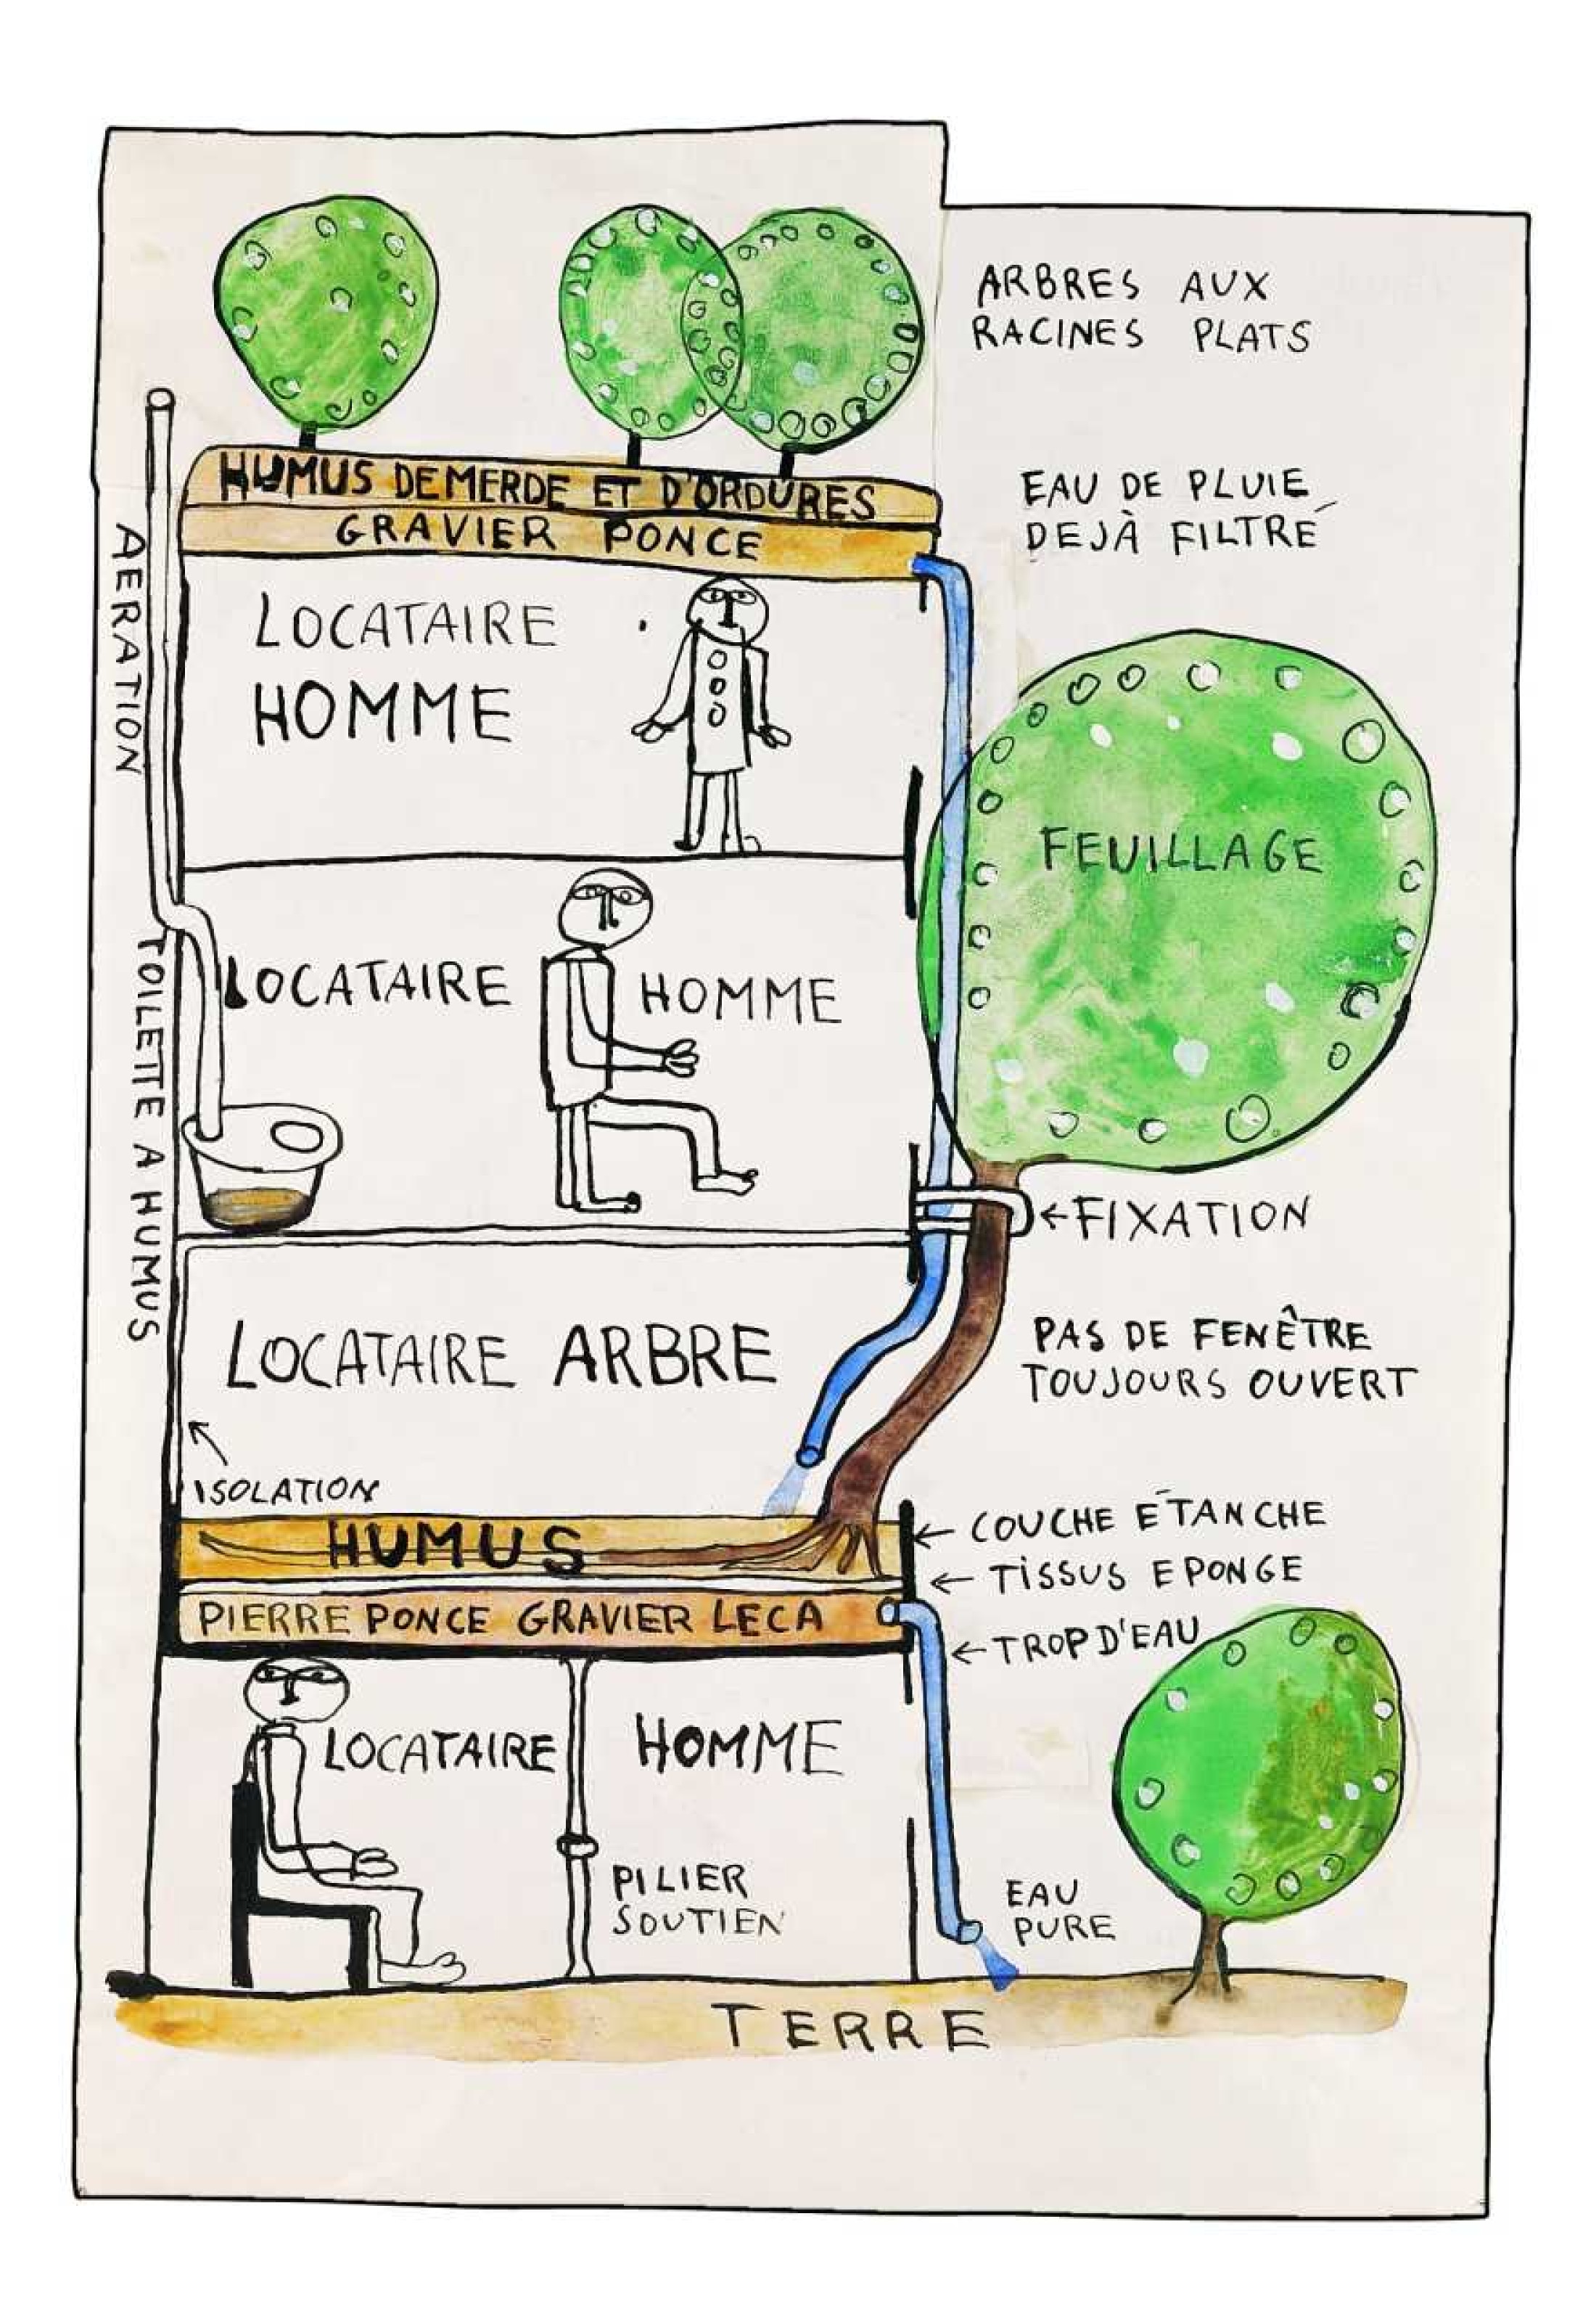 ARBRES AUX
RACINES PLATS
HUMUS DE MERDE ET D'ORDURES
GRAVIER PONCE
EAU DE PLUIE
DEJÀ FILTRÉ
AERATION
LOCATAIRE
HOMME
FEUILLAGE
TOILETTE A HUMUS
LOCATAIRE HOMME
←FIXATION
LOCATAIRE ARBRE
PAS DE FENÊTRE
TOUJOURS OUVERT
ISOLATION
HUMUS
← COUCHE ÉTANCHE
← TISSUS EPONGE
PIERRE PONCE GRAVIER LECA
← TROP D'EAU
LOCATAIRE HOMME
PILIER
SOUTIEN
EAU
PURE
TERRE